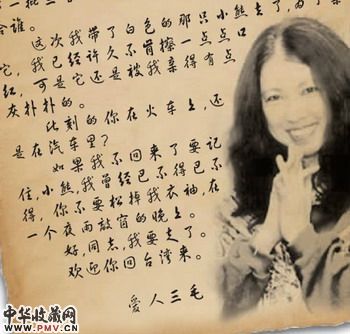 一批三
会谁。
这次我带了白色的那只小熊去了,为了亲
它,我已经许久不肯擦一点点口
红,可是它还是被我亲得有点
灰扑扑的。
此刻的你在火车上,还
是在汽车里?
如果我不回来了要记
住,小熊,我曾经已不得已不
得,你不要松掉我衣袖,在
一个夜雨敲窗的晚上。
好,同志,我要走了。
欢迎你回台湾来。
爱人三毛
中华收藏网
WWW.PMV.CN
中华收藏网
WWW.PMV.CN